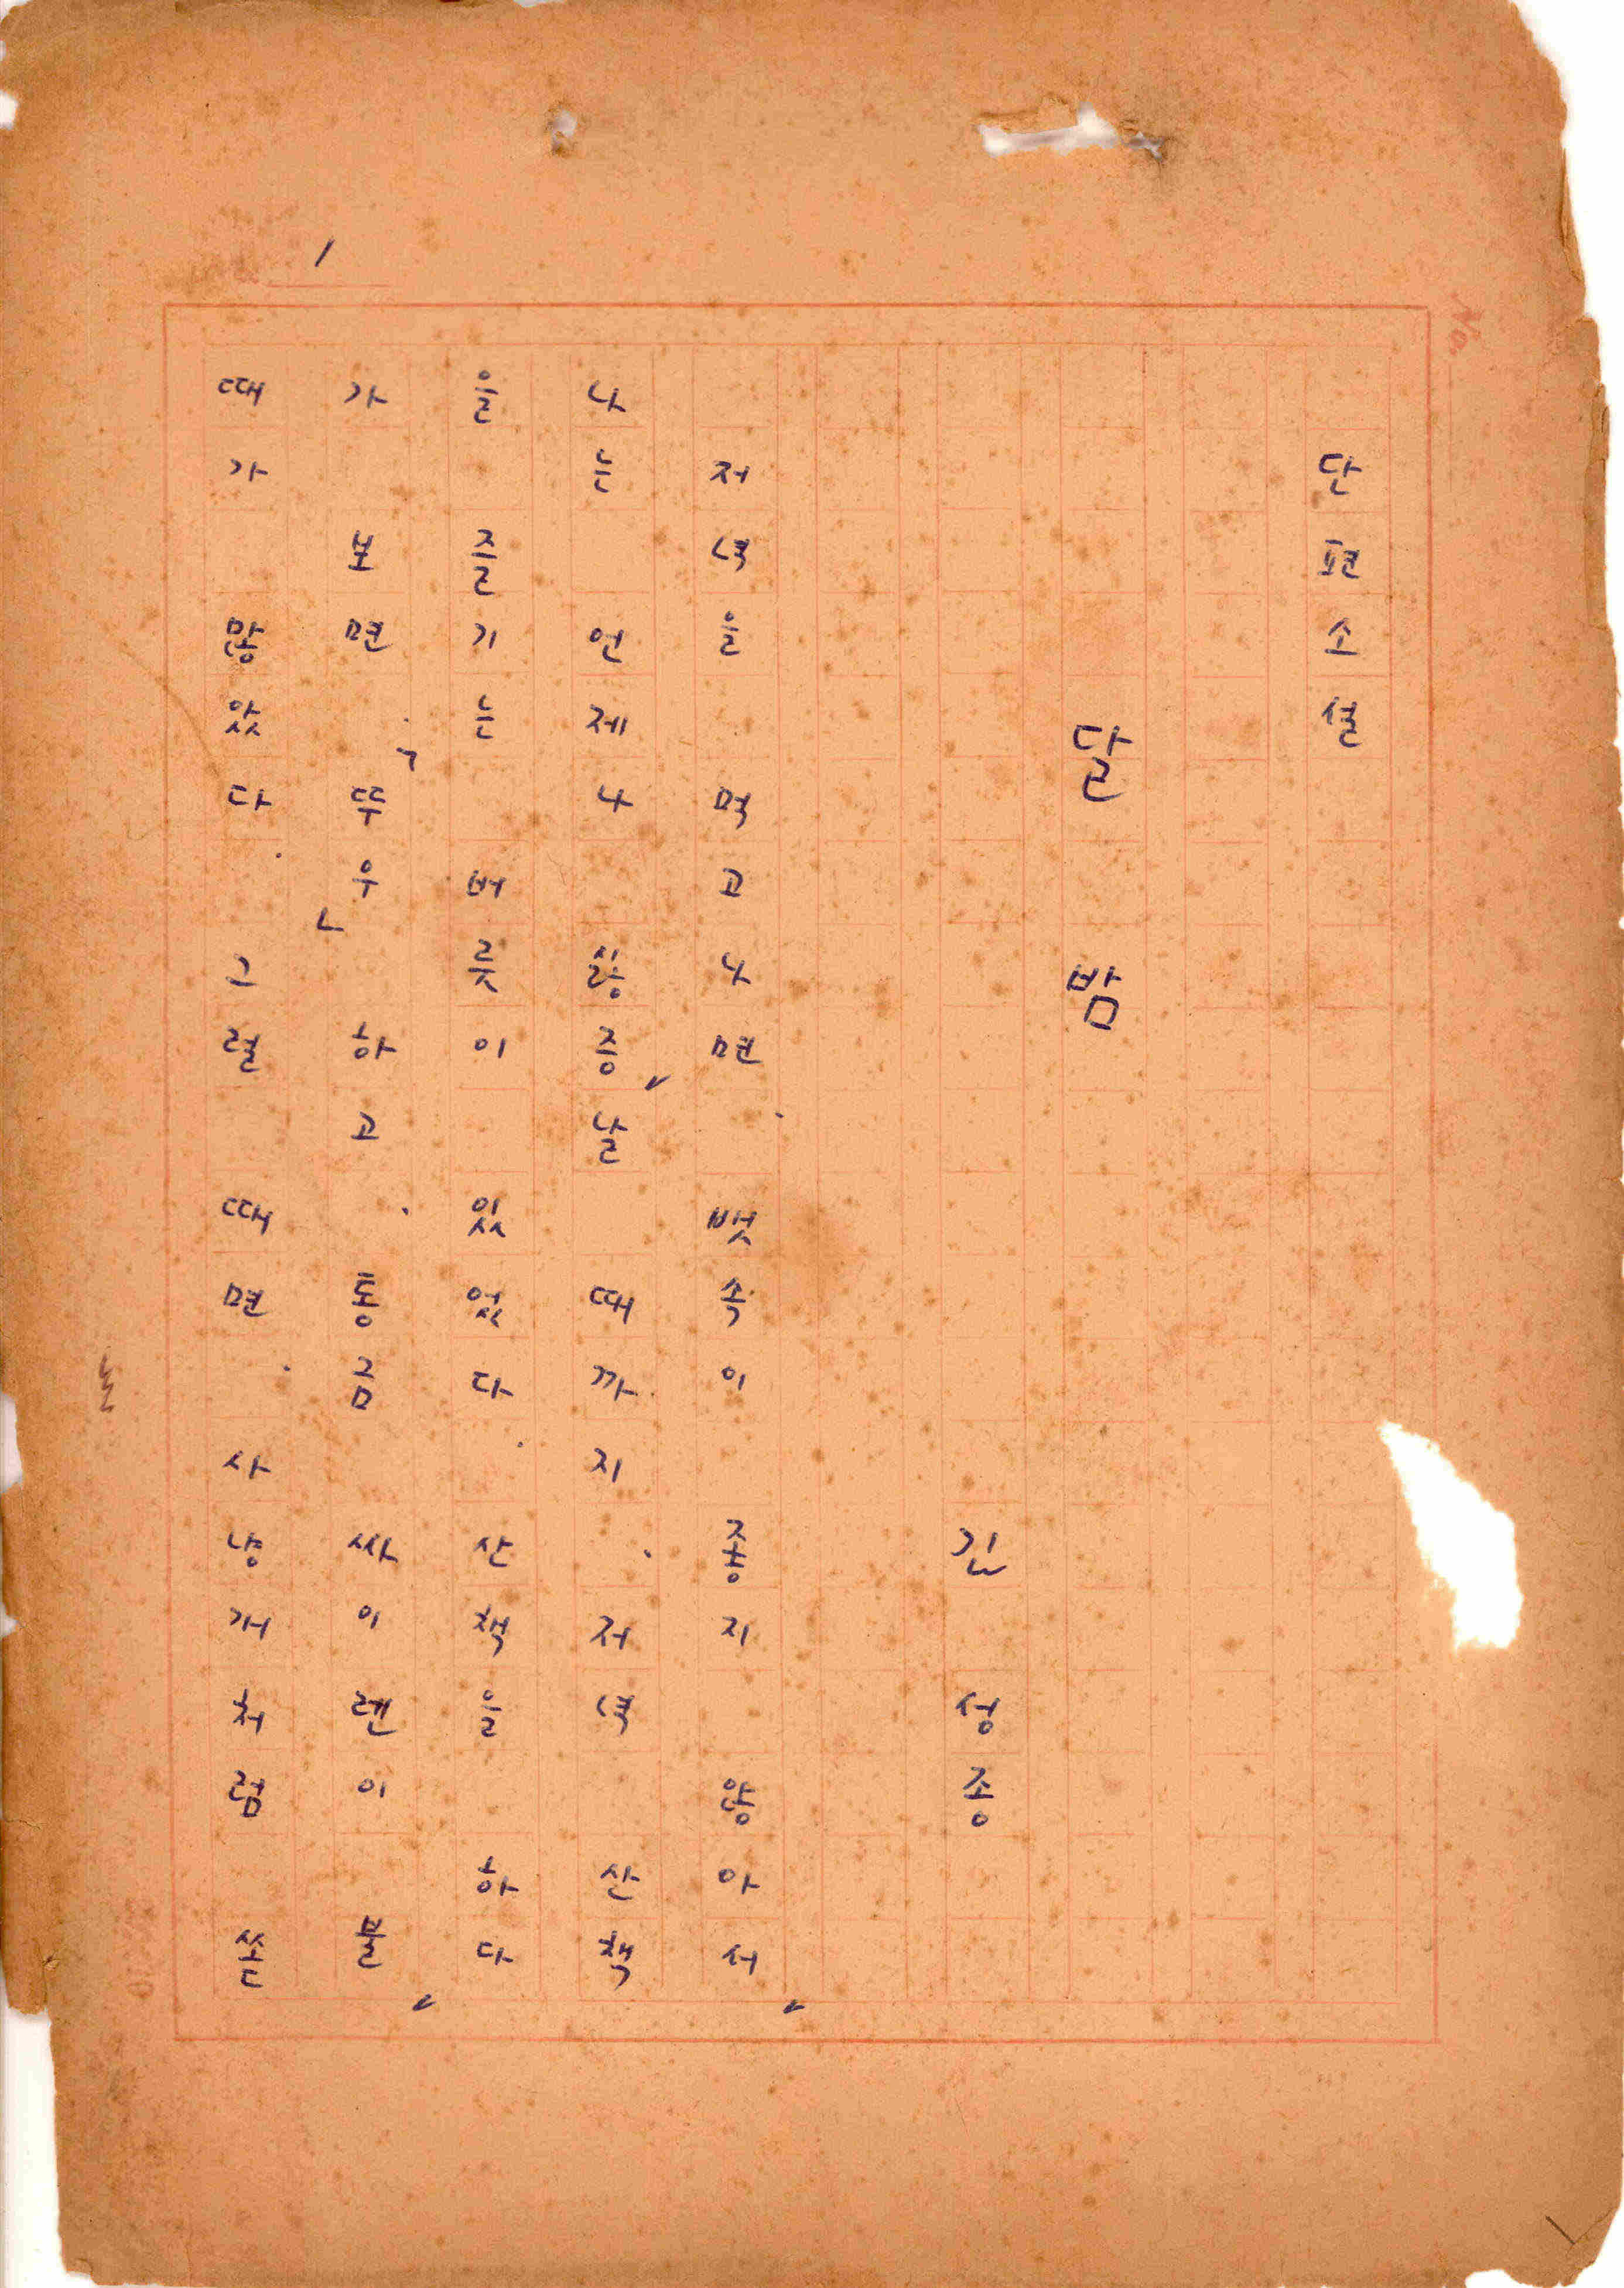 No.
1
단편소설
달 밤
김 성종
저녁을 먹고나면, 뱃속이 좋지 않아서
나는 언제나 싫증 날 때까지, 저녁 산책
을 즐기는 버릇이 있었다. 산책을 하다
가 보면, 「뚜우」하고, 통금 싸이렌이 불
때가 많았다. 그럴 때면, 사냥개처럼 쏜